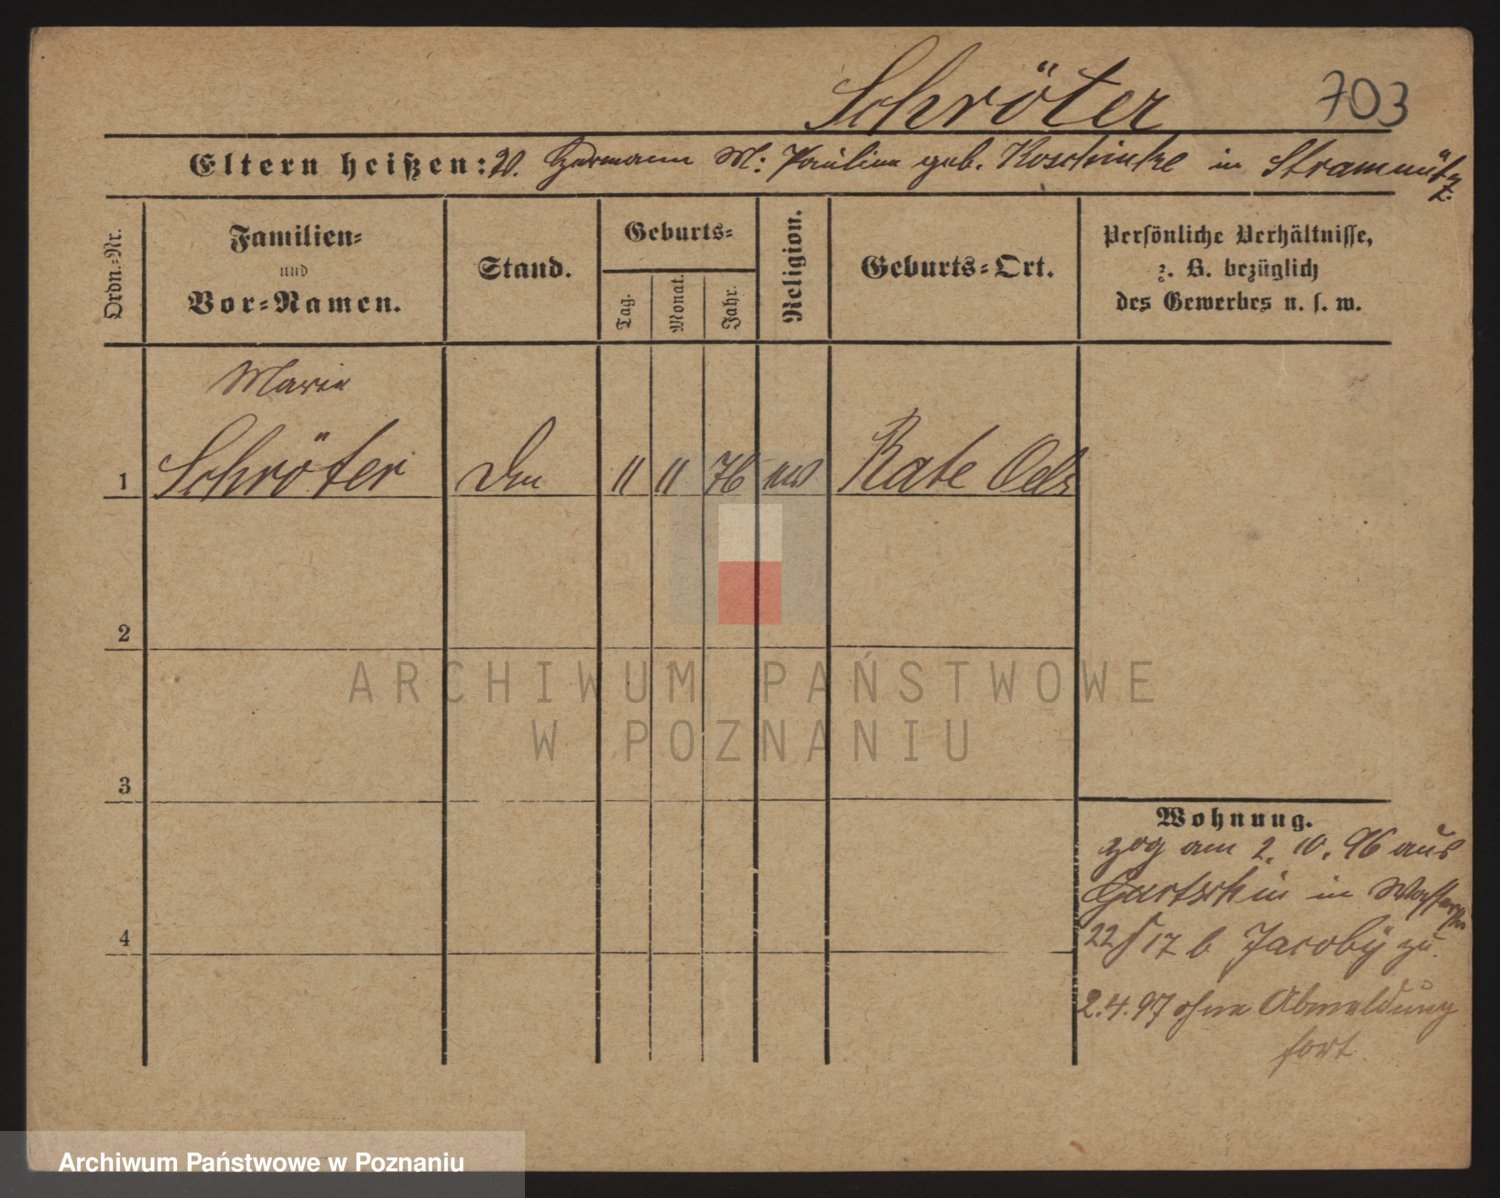 Schröter 703
Eltern heißen: V. Hermann M: Pauline geb. Koschinke in Strammütz
Ordn.-Nr.
Familien-
und
Vor-Namen.
Stand.
Geburts-
Tag.
Monat.
Jahr.
Religion.
Geburts-Ort.
Persönliche Verhältnisse,
z. B. bezüglich
des Gewerbes u. s. w.
Marie
1 Schröter " " 76 Rate Oels
2
3
4
ARCHIWUM PAŃSTWOWE
W POZNANIU
Wohnung.
zog am 2. 10. 96 aus
in
22/17 b Jacoby zu.
2.4.97 ohne Abmeldung
fort
Archiwum Państwowe w Poznaniu